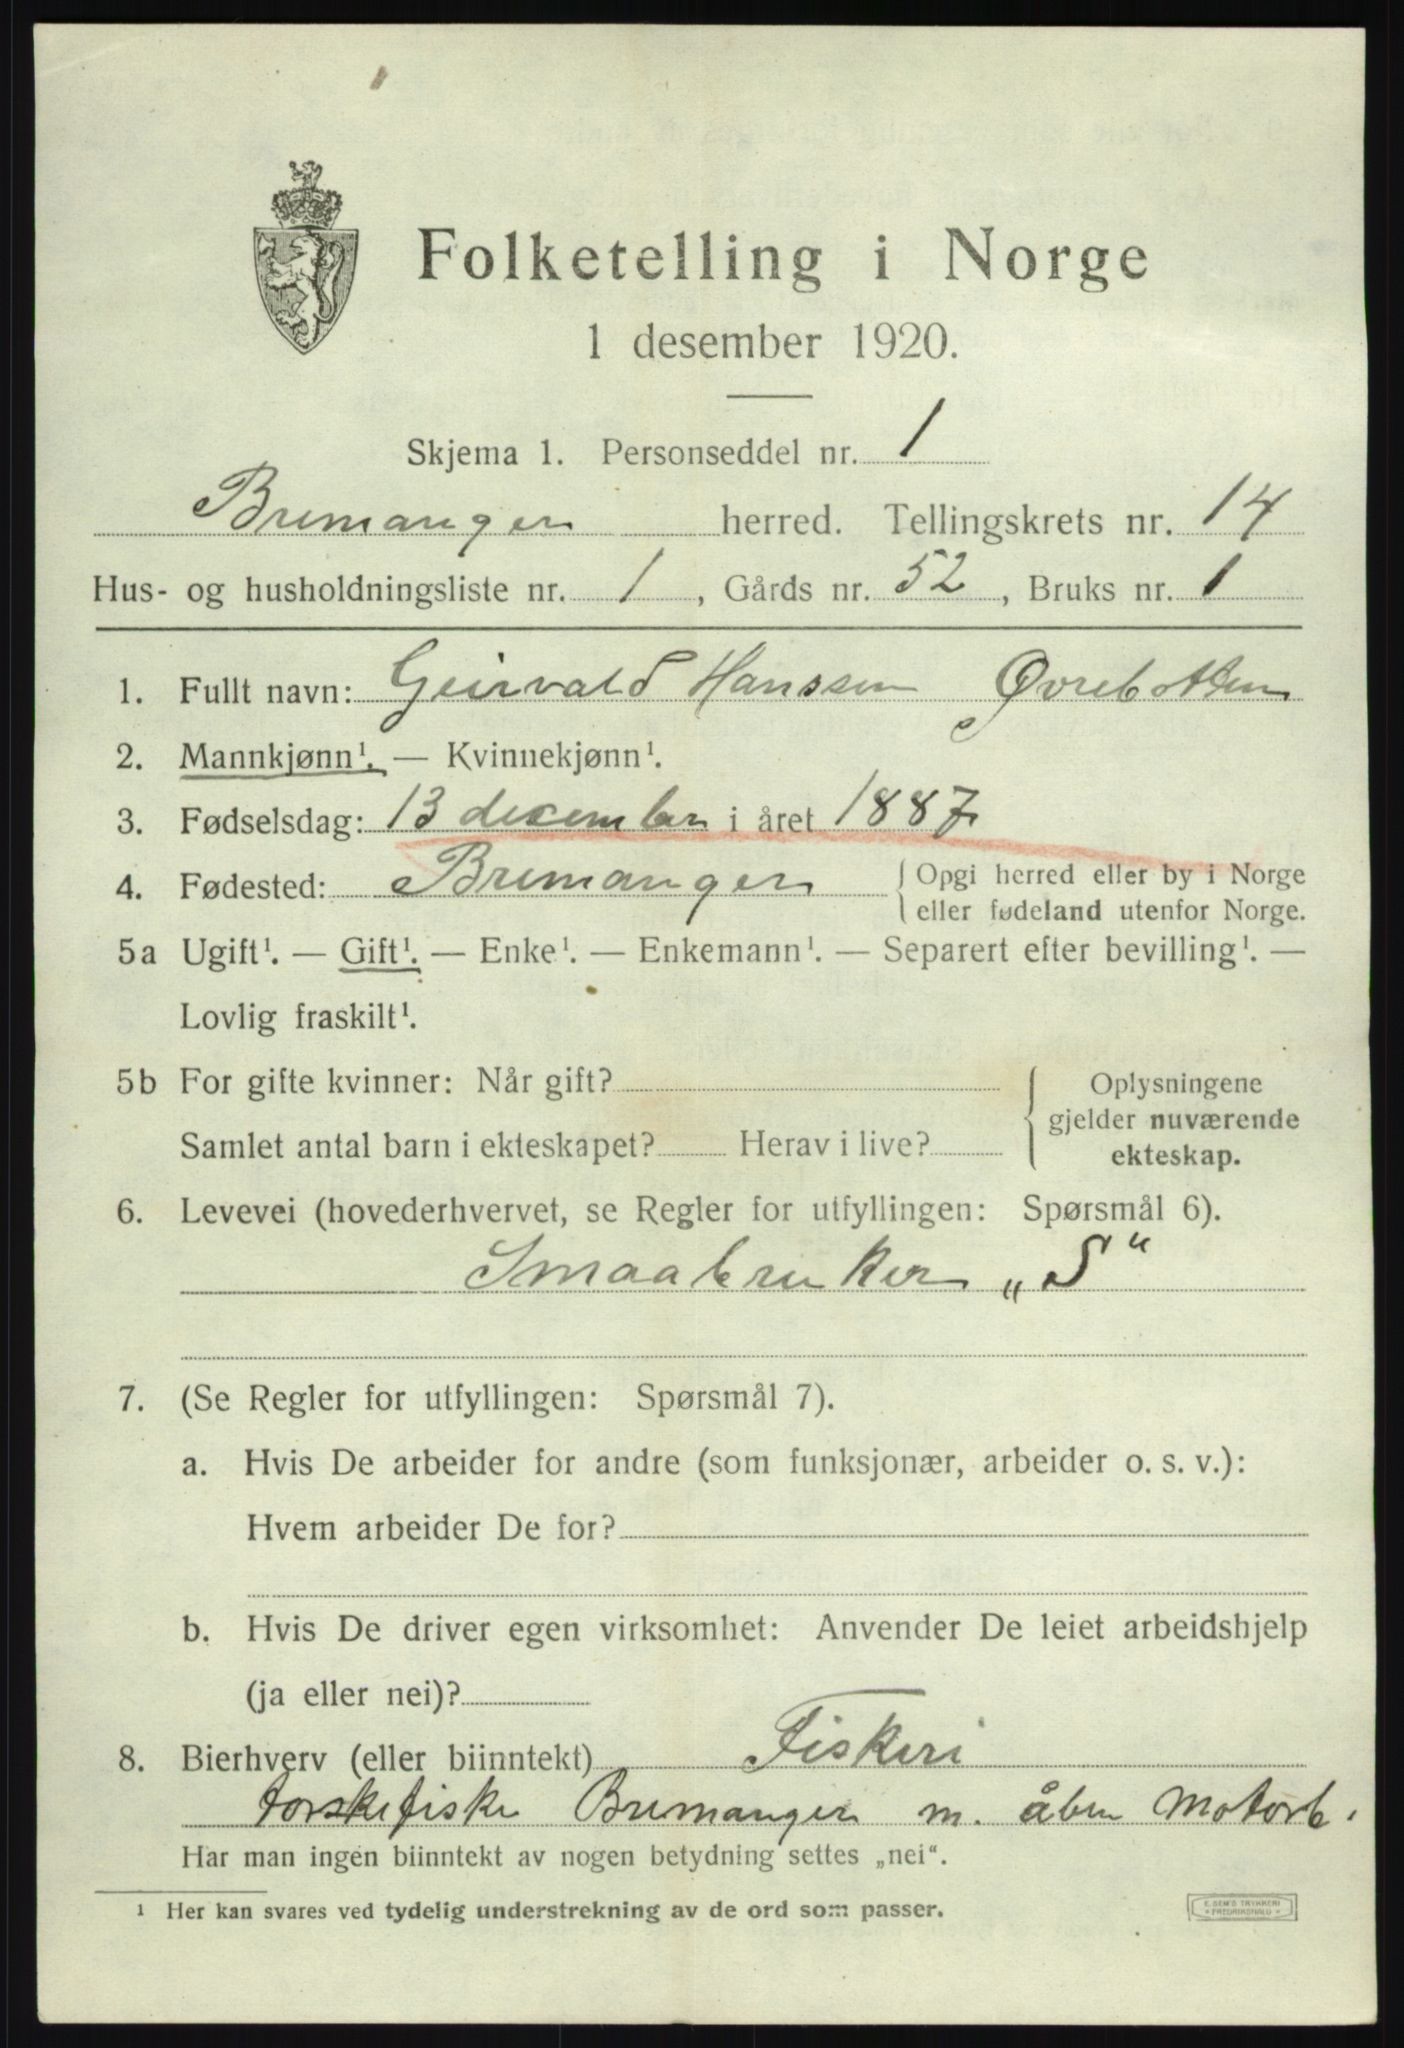 Folketelling i Norge
1 desember 1920.
Skjema 1. Personseddel nr. 1
Bremanger herred. Tellingskrets nr. 14
Hus- og husholdningsliste nr. 1, Gårds nr. 52, Bruks nr. 1
1. Fullt navn: Geirvald Hanssen Øvrebotten
2. Mannkjønn¹. — Kvinnekjønn¹.
3. Fødselsdag: 13 december i året 1887
4. Fødested: Bremanger { Opgi herred eller by i Norge
eller fødeland utenfor Norge.
5a Ugift¹. — Gift¹. — Enke¹. — Enkemann¹. — Separert efter bevilling¹. —
Lovlig fraskilt¹.
5b For gifte kvinner: Når gift? { Oplysningene
gjelder nuværende
Samlet antal barn i ekteskapet? Herav i live? ekteskap.
6. Levevei (hovederhvervet, se Regler for utfyllingen: Spørsmål 6).
Smaabruker „S“
7. (Se Regler for utfyllingen: Spørsmål 7).
a. Hvis De arbeider for andre (som funksjonær, arbeider o. s. v.):
Hvem arbeider De for?
b. Hvis De driver egen virksomhet: Anvender De leiet arbeidshjelp
(ja eller nei)?
8. Bierhverv (eller biinntekt) Fiskeri
torskefiske Bremanger m. åben Motorb.
Har man ingen biinntekt av nogen betydning settes „nei“.
¹ Her kan svares ved tydelig understrekning av de ord som passer.
E. SEM'S TRYKKERI
FREDRIKSHALD